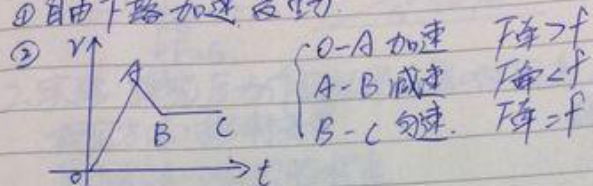 ①自由下路加速度
② v
A
B C
O t
O-A 加速 F牵>f
A-B 减速 F牵<f
B-C 匀速. F牵=f